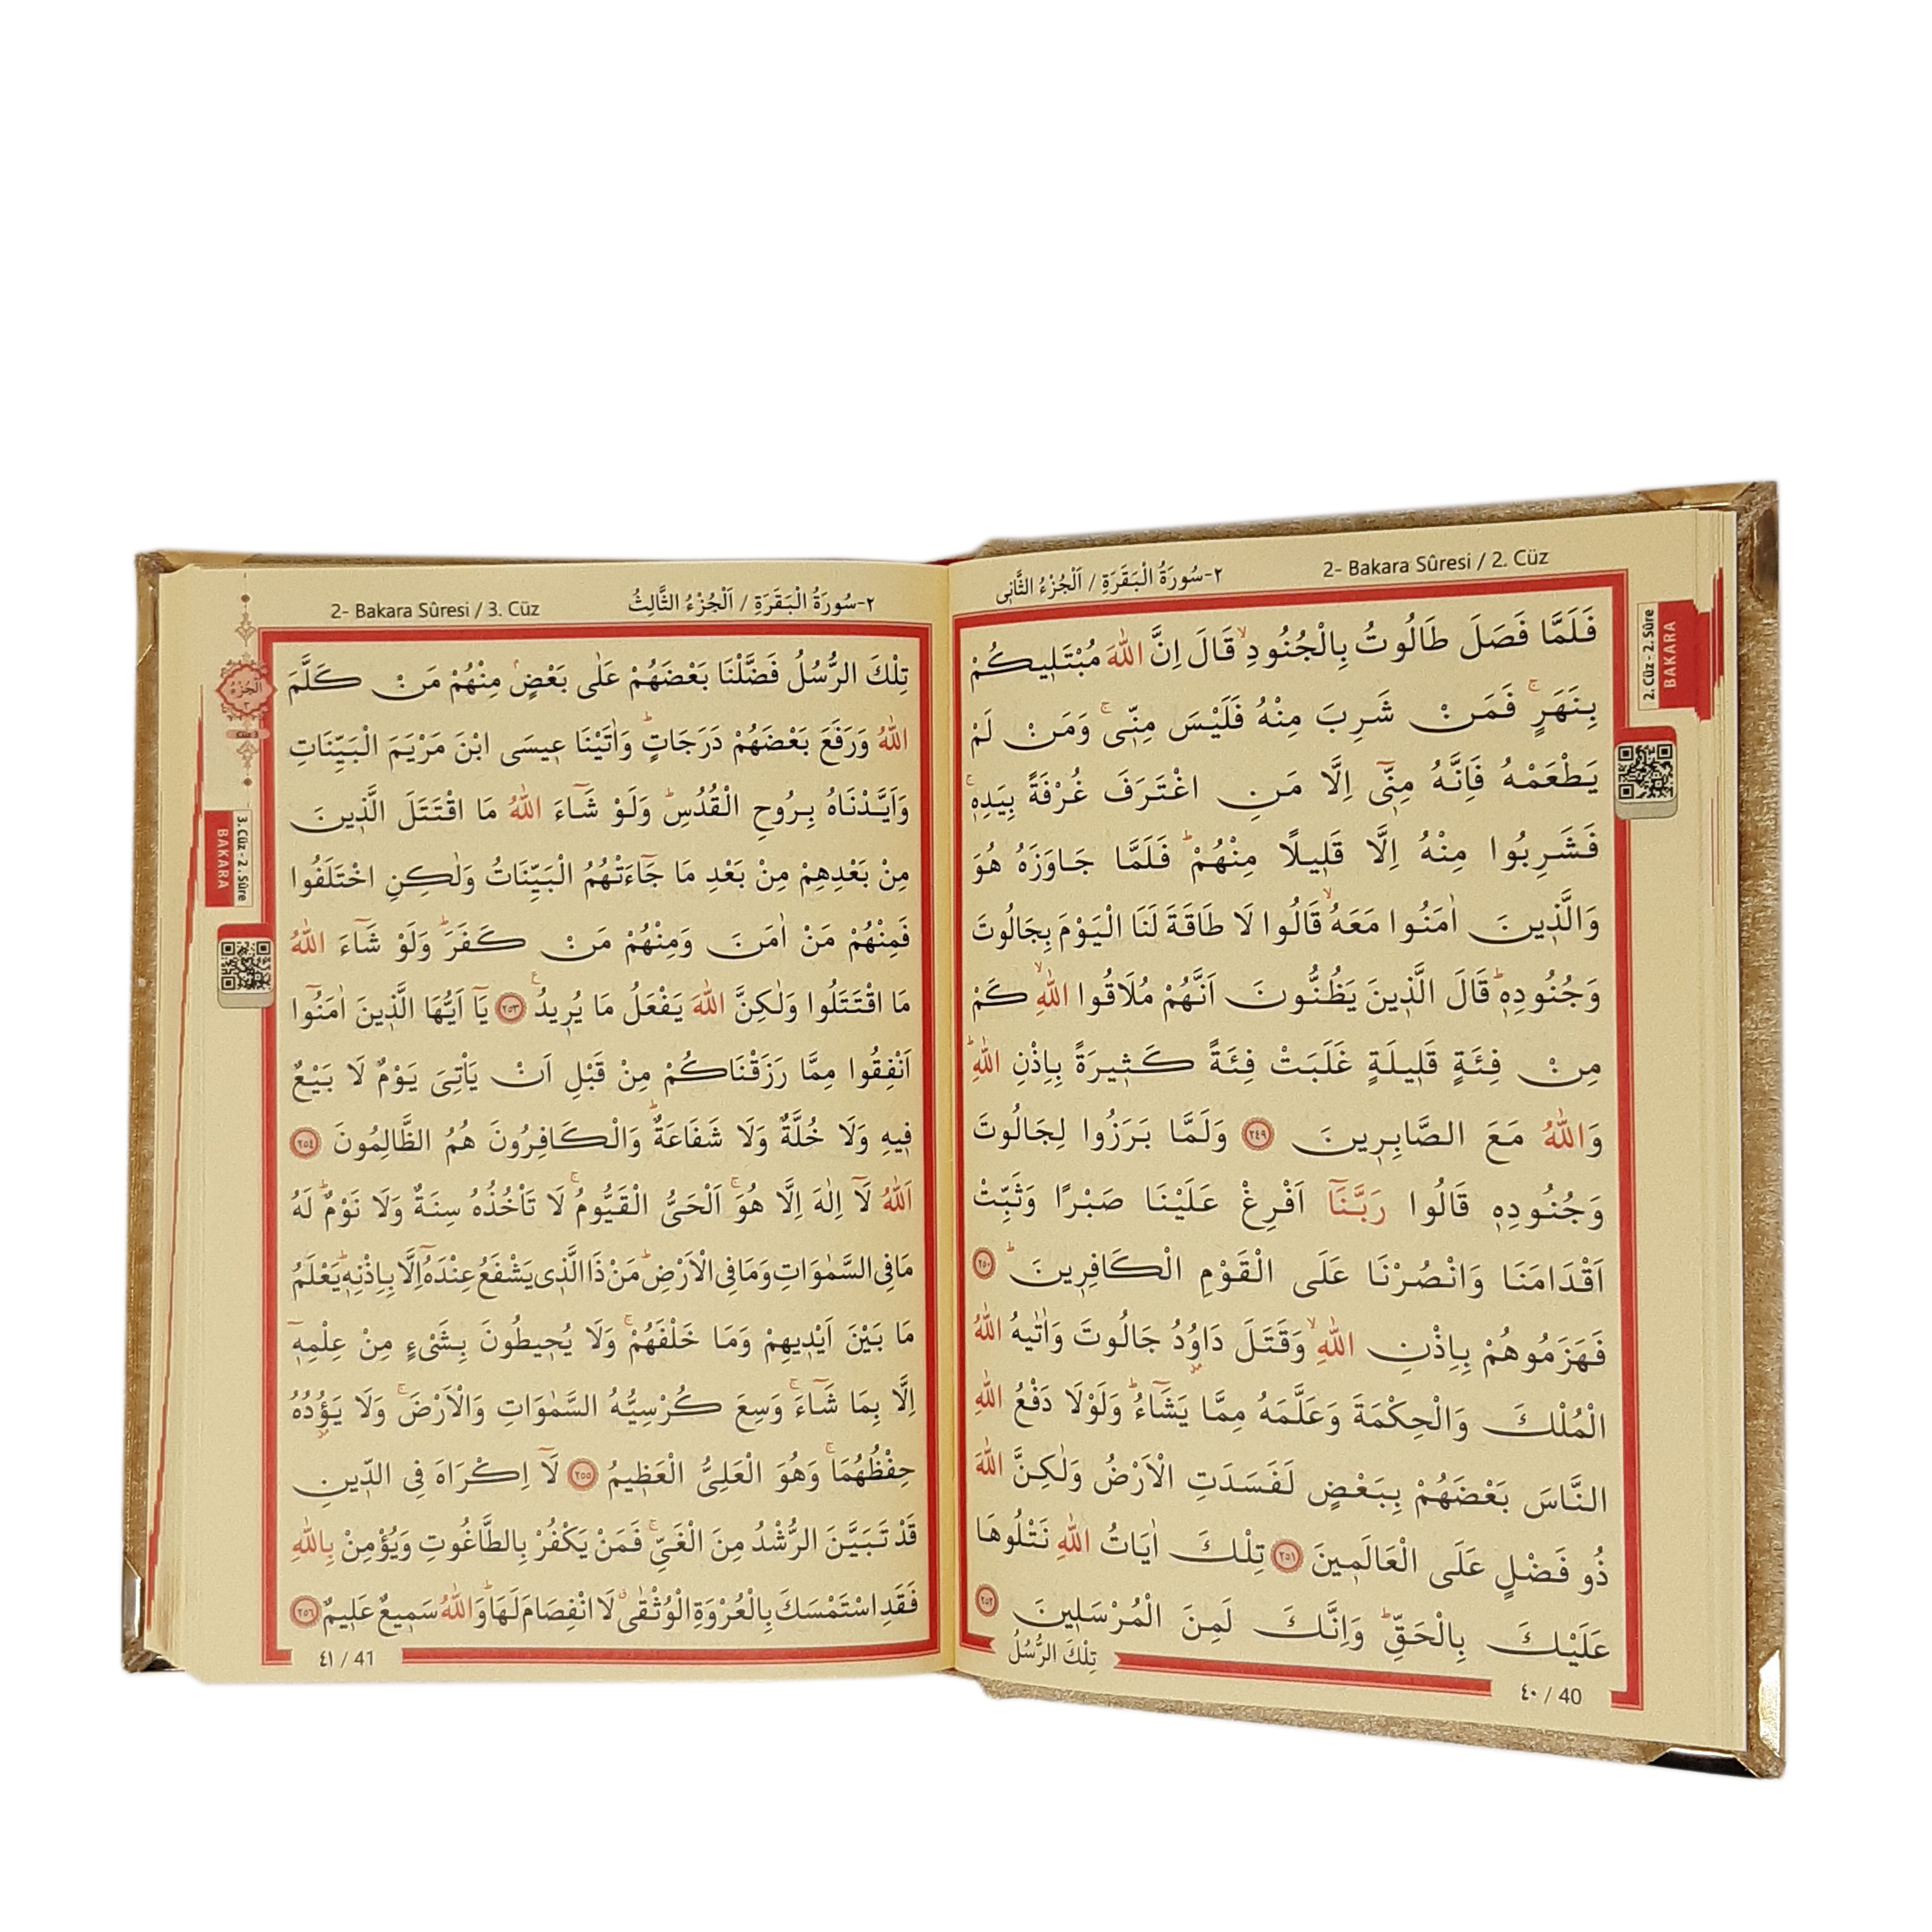 2- Bakara Sûresi / 2. Cüz
٢-سُورَةُ الْبَقَرَةِ / اَلْجُزْءُ الثَّانِي
2. Cüz - 2. Sûre
BAKARA
فَلَمَّا فَصَلَ طَالُوتُ بِالْجُنُودِۙ قَالَ اِنَّ اللّٰهَ مُبْتَل۪يكُمْ
بِنَهَرٍۚ فَمَنْ شَرِبَ مِنْهُ فَلَيْسَ مِنّ۪يۚ وَمَنْ لَمْ
يَطْعَمْهُ فَاِنَّهُ مِنّ۪ٓي اِلَّا مَنِ اغْتَرَفَ غُرْفَةً بِيَدِه۪ۚ
فَشَرِبُوا مِنْهُ اِلَّا قَل۪يلًا مِنْهُمْۜ فَلَمَّا جَاوَزَهُ هُوَ
وَالَّذ۪ينَ اٰمَنُوا مَعَهُۙ قَالُوا لَا طَاقَةَ لَنَا الْيَوْمَ بِجَالُوتَ
وَجُنُودِه۪ۜ قَالَ الَّذ۪ينَ يَظُنُّونَ اَنَّهُمْ مُلَاقُوا اللّٰهِۙ كَمْ
مِنْ فِئَةٍ قَل۪يلَةٍ غَلَبَتْ فِئَةً كَث۪يرَةً بِاِذْنِ اللّٰهِۜ
وَاللّٰهُ مَعَ الصَّابِر۪ينَ ٢٤٩ وَلَمَّا بَرَزُوا لِجَالُوتَ
وَجُنُودِه۪ قَالُوا رَبَّنَٓا اَفْرِغْ عَلَيْنَا صَبْرًا وَثَبِّتْ
اَقْدَامَنَا وَانْصُرْنَا عَلَى الْقَوْمِ الْكَافِر۪ينَۜ ٢٥٠
فَهَزَمُوهُمْ بِاِذْنِ اللّٰهِۙ وَقَتَلَ دَاوُ۫دُ جَالُوتَ وَاٰتٰيهُ اللّٰهُ
الْمُلْكَ وَالْحِكْمَةَ وَعَلَّمَهُ مِمَّا يَشَٓاءُۜ وَلَوْلَا دَفْعُ اللّٰهِ
النَّاسَ بَعْضَهُمْ بِبَعْضٍ لَفَسَدَتِ الْاَرْضُ وَلٰكِنَّ اللّٰهَ
ذُو فَضْلٍ عَلَى الْعَالَم۪ينَ ٢٥١ تِلْكَ اٰيَاتُ اللّٰهِ نَتْلُوهَا
عَلَيْكَ بِالْحَقِّۜ وَاِنَّكَ لَمِنَ الْمُرْسَل۪ينَ ٢٥٢
تِلْكَ الرُّسُلُ
٤٠ / 40
2- Bakara Sûresi / 3. Cüz
٢-سُورَةُ الْبَقَرَةِ / اَلْجُزْءُ الثَّالِثُ
اَلْجُزْءُ
٣
Cüz 3
3. Cüz - 2. Sûre
BAKARA
تِلْكَ الرُّسُلُ فَضَّلْنَا بَعْضَهُمْ عَلٰى بَعْضٍۢ مِنْهُمْ مَنْ كَلَّمَ
اللّٰهُ وَرَفَعَ بَعْضَهُمْ دَرَجَاتٍۜ وَاٰتَيْنَا ع۪يسَى ابْنَ مَرْيَمَ الْبَيِّنَاتِ
وَاَيَّدْنَاهُ بِرُوحِ الْقُدُسِۜ وَلَوْ شَٓاءَ اللّٰهُ مَا اقْتَتَلَ الَّذ۪ينَ
مِنْ بَعْدِهِمْ مِنْ بَعْدِ مَا جَٓاءَتْهُمُ الْبَيِّنَاتُ وَلٰكِنِ اخْتَلَفُوا
فَمِنْهُمْ مَنْ اٰمَنَ وَمِنْهُمْ مَنْ كَفَرَۜ وَلَوْ شَٓاءَ اللّٰهُ
مَا اقْتَتَلُوا وَلٰكِنَّ اللّٰهَ يَفْعَلُ مَا يُر۪يدُ۟ ٢٥٣ يَٓا اَيُّهَا الَّذ۪ينَ اٰمَنُٓوا
اَنْفِقُوا مِمَّا رَزَقْنَاكُمْ مِنْ قَبْلِ اَنْ يَأْتِيَ يَوْمٌ لَا بَيْعٌ
ف۪يهِ وَلَا خُلَّةٌ وَلَا شَفَاعَةٌۜ وَالْكَافِرُونَ هُمُ الظَّالِمُونَ ٢٥٤
اَللّٰهُ لَٓا اِلٰهَ اِلَّا هُوَۚ اَلْحَيُّ الْقَيُّومُۚ لَا تَأْخُذُهُ سِنَةٌ وَلَا نَوْمٌۜ لَهُ
مَا فِي السَّمٰوَاتِ وَمَا فِي الْاَرْضِۜ مَنْ ذَا الَّذ۪ي يَشْفَعُ عِنْدَهُٓ اِلَّا بِاِذْنِه۪ۜ يَعْلَمُ
مَا بَيْنَ اَيْد۪يهِمْ وَمَا خَلْفَهُمْۚ وَلَا يُح۪يطُونَ بِشَيْءٍ مِنْ عِلْمِه۪ٓ
اِلَّا بِمَا شَٓاءَۚ وَسِعَ كُرْسِيُّهُ السَّمٰوَاتِ وَالْاَرْضَۚ وَلَا يَؤُ۫دُهُ
حِفْظُهُمَاۚ وَهُوَ الْعَلِيُّ الْعَظ۪يمُ ٢٥٥ لَٓا اِكْرَاهَ فِي الدّ۪ينِ
قَدْ تَبَيَّنَ الرُّشْدُ مِنَ الْغَيِّۚ فَمَنْ يَكْفُرْ بِالطَّاغُوتِ وَيُؤْمِنْ بِاللّٰهِ
فَقَدِ اسْتَمْسَكَ بِالْعُرْوَةِ الْوُثْقٰىۗ لَا انْفِصَامَ لَهَاۜ وَاللّٰهُ سَم۪يعٌ عَل۪يمٌ ٢٥٦
٤١ / 41